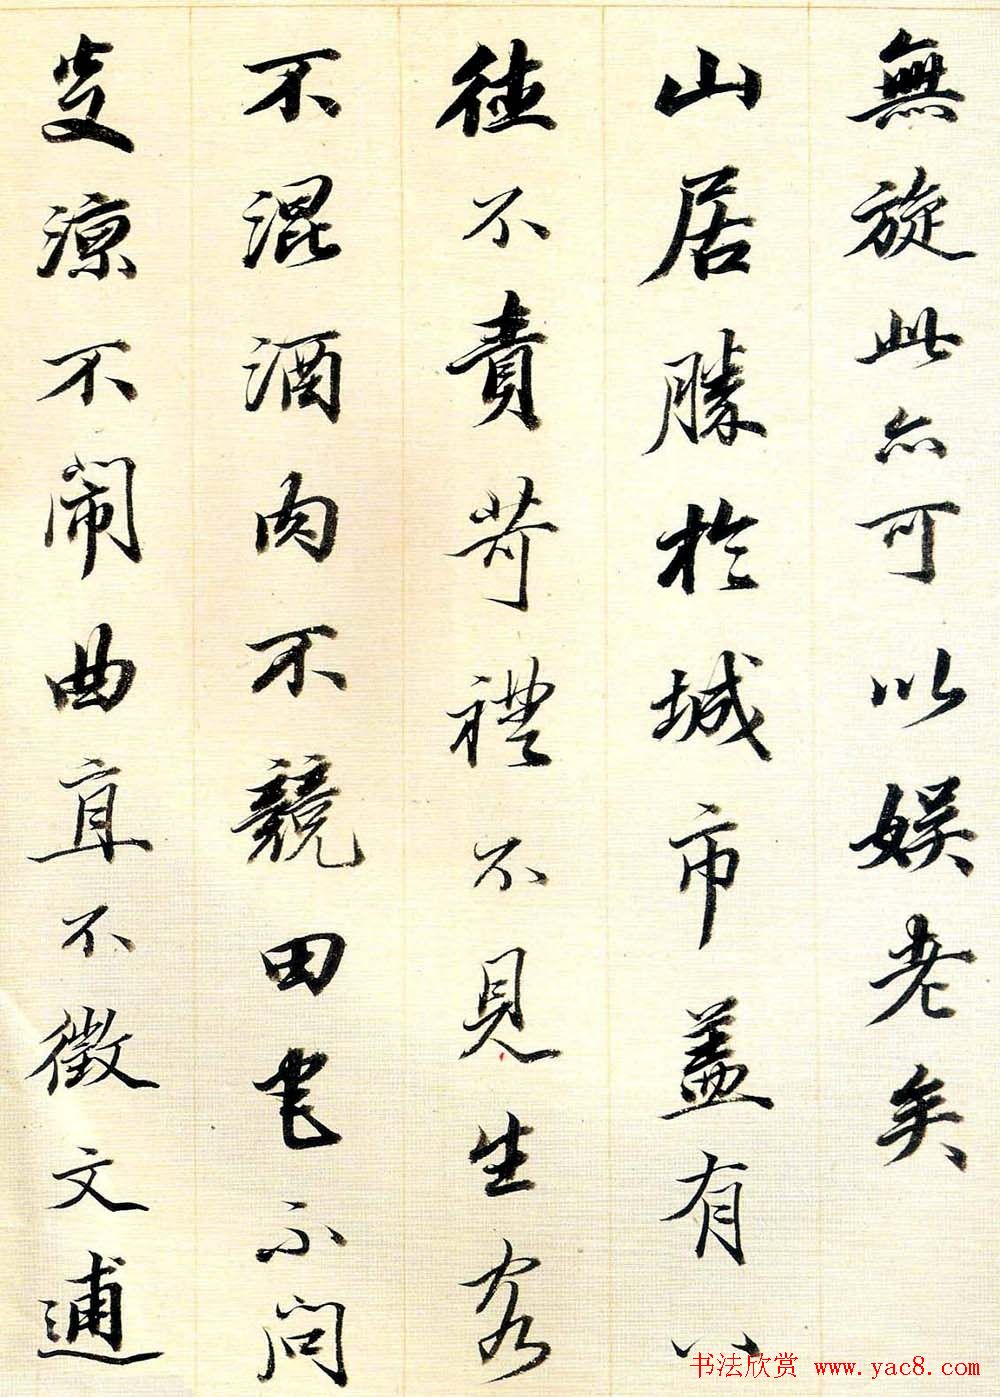 無旋此亦可以娛老矣
山居勝於城市蓋有八
德不責苛禮不見生客
不混酒肉不競田宅不問
炎涼不閙曲直不徵文逋
书法欣赏 www.yac8.com